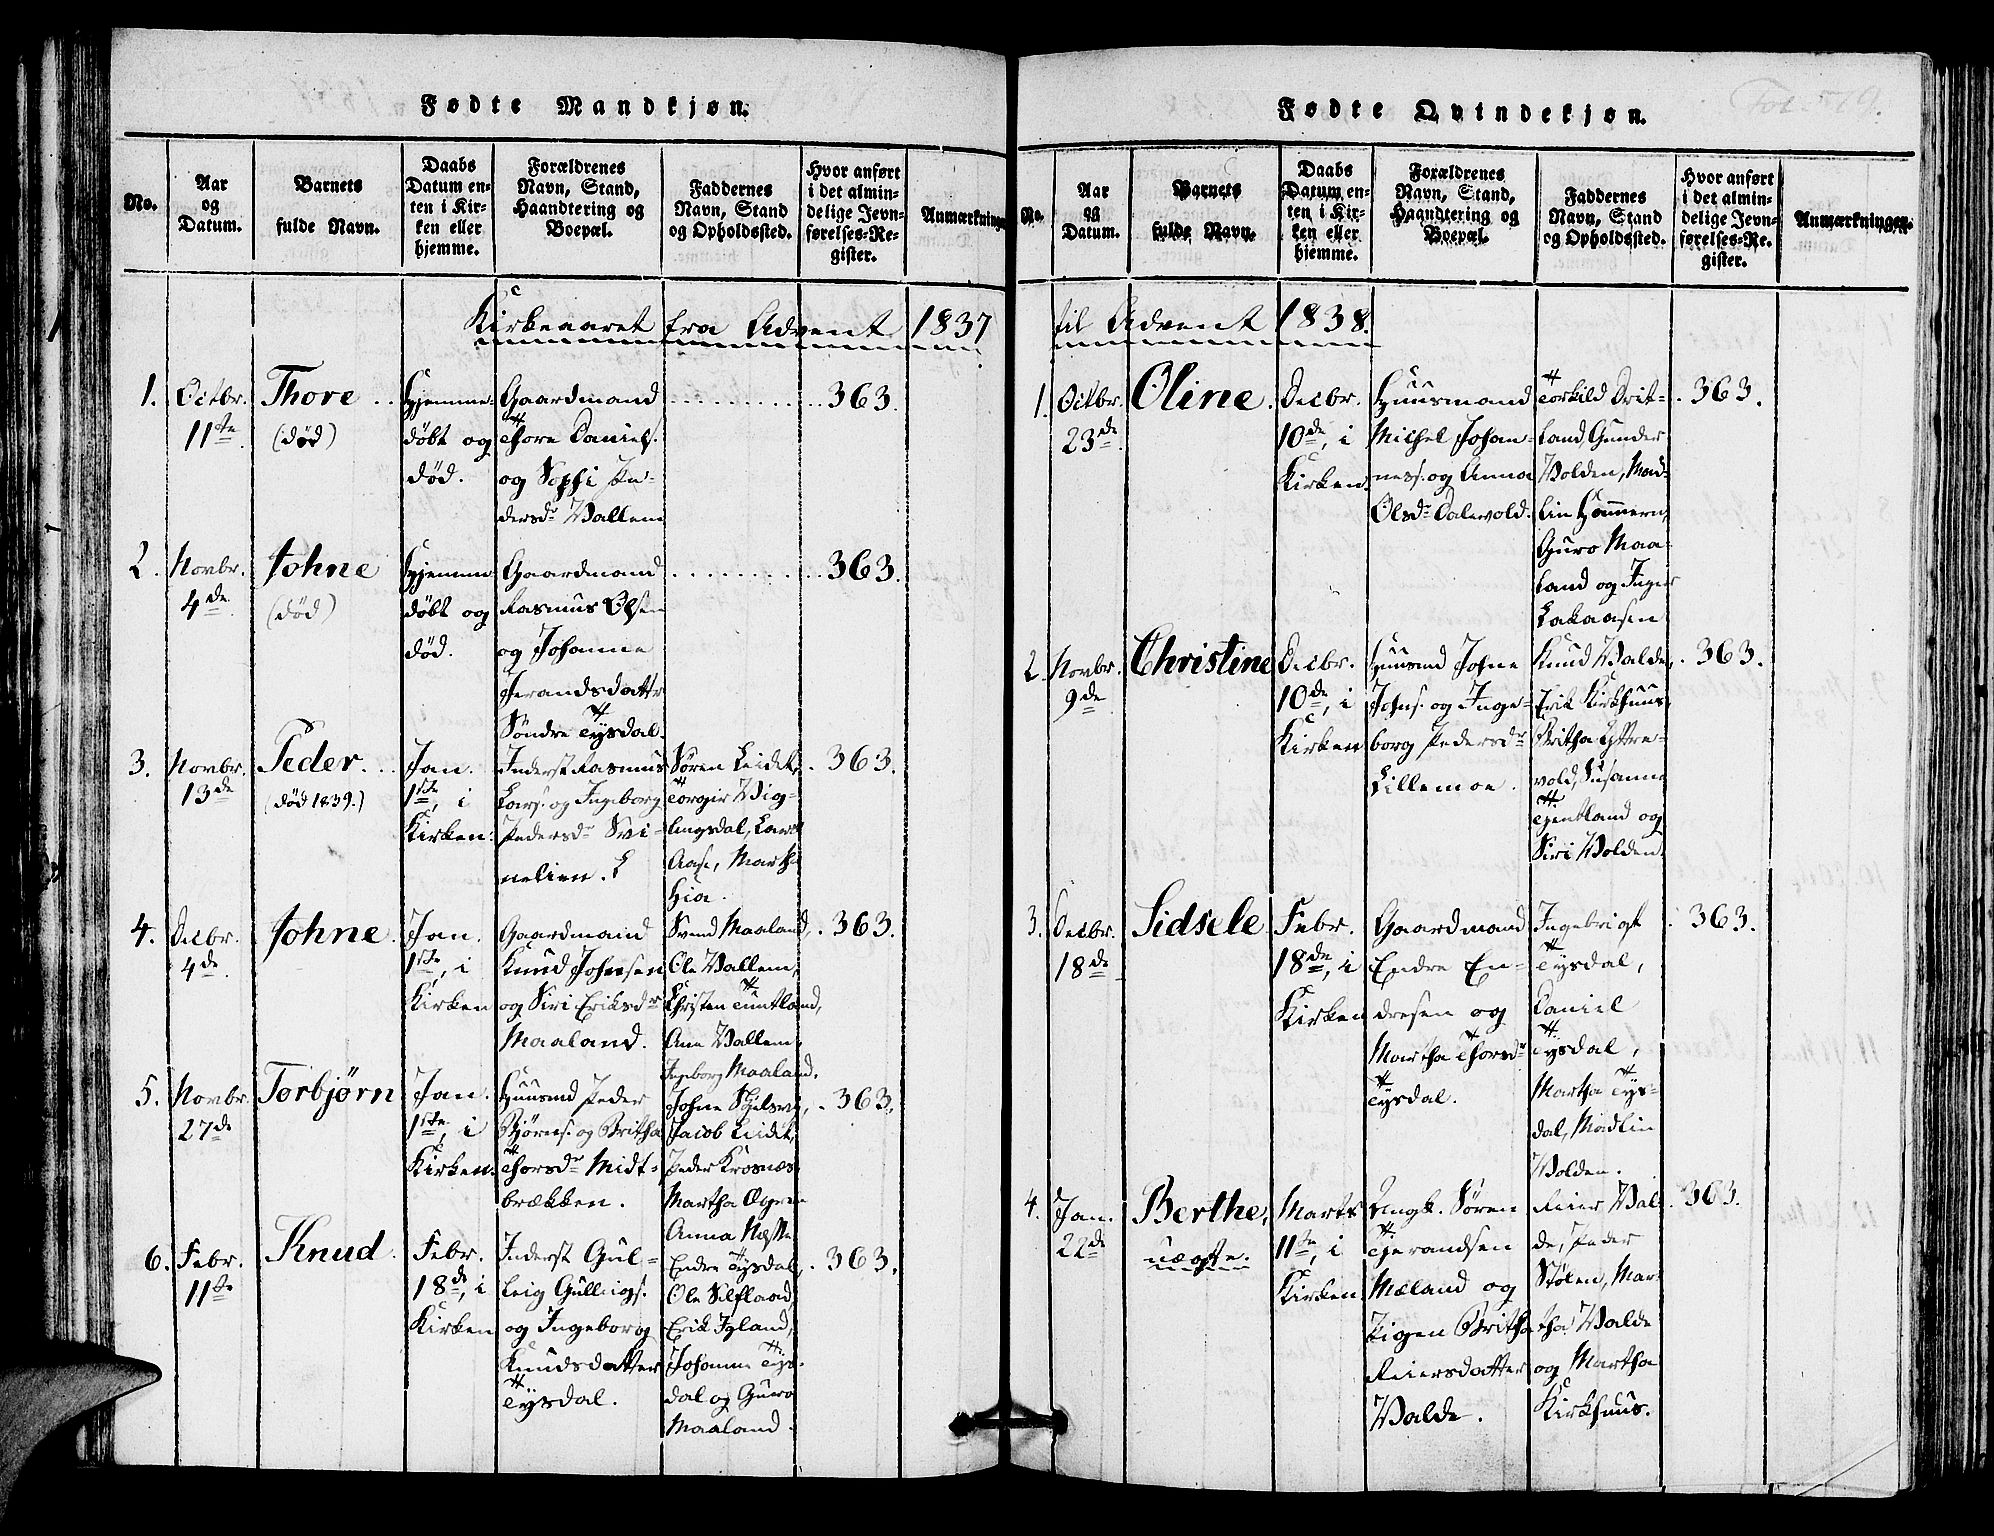 Fødte Mandkjøn.
No.
Aar
og
Datum.
Barnets
fulde Navn.
Daabs
Datum en-
ten i Kir-
ken eller
hjemme.
Forældrenes
Navn, Stand,
Haandtering og
Boepæl.
Faddernes
Navn, Stand
og Opholdssted.
Hvor anført
i det almin-
delige Jevn-
førelses-Re-
gister.
Anmærkninger
Kirkeaaret fra Advent 1837
1.
Octbr.
11te
Thore
(død)
Hjemme-
døbt og
død.
Gaardmand
Thore Daniels.
og Sophi Pe-
dersdr Vallem
363.
2.
Novbr.
4de
Johne
(død)
Hjemme
døbt og
død.
Gaardmand
Rasmus Olsen
og Johanne
Jerandsdattr
Søndre Tysdal.
363.
3.
Novbr.
13de
Peder
(død 1839.)
Jan.
1ste, i
Kirken.
Inderst Rasmus
Lars. og Ingeborg
Pedersdr Svi-
nelien.
Søren Leidet,
Torgir Vig-
lingsdal, Lars
Aase, Martha
Hia.
363.
4.
Decbr.
4de
Johne
Jan.
1ste, i
Kirken
Gaardmand
Knud Johnsen
og Siri Eriksdr
Maaland.
Svend Maaland,
Ole Vallem,
Christen Tuntland,
Ane Vallem,
Ingeborg Maaland.
363.
5.
Novbr.
27de
Torbjørn
Jan.
1ste, i
Kirken.
Huusmd Peder
Bjørns. og Britha
Thorsdr Midt-
brækken.
Johne Skjelsvig,
Jacob Leidet,
Peder Krosnæs
Martha
Anna
363.
6.
Febr.
11te
Knud
Febr.
18de, i
Kirken
Inderst Gul-
leig Gulleigs.
og Ingeborg
Knudsdatter
Tysdal.
Endre Tysdal,
Ole
Erik
Johanne Tys-
dal og Guro
Maaland.
363.
Fødte Qvindekjøn.
Fol. 579.
No.
Aar
og
Datum.
Barnets
fulde Navn.
Daabs
Datum en-
ten i Kir-
ken eller
hjemme.
Forældrenes
Navn, Stand,
Haandtering og
Boepæl.
Faddernes
Navn, Stand
og Opholdssted.
Hvor anført
i det almin-
delige Jevn-
førelses-Re-
gister.
Anmærkninger.
til Advent 1838.
1.
Octbr.
23de
Oline
Decbr.
10de, i
Kirken
Huusmand
Michel Johan-
ness. og Anna
Olsdr Dalevold.
Torkild Drit-
land, Gunder
Volden, Mad-
lin Hammern,
Guro Maa-
land og Inger
Lakaasen
363.
2.
Novbr.
9de
Christine
Decbr.
10de, i
Kirken
Huusmd Johne
Johns. og Inge-
borg Pedersdr
Lillemoe.
Knud Valde,
Erik Kirkhuus,
Britha Yttre-
vold, Susanna
Tjentland og
Siri Volden.
363.
3.
Decbr.
18de
Sidsele
Febr.
18de, i
Kirken
Gaardmand
Endre En-
dresen og
Martha Thorsdr
Tysdal.
Ingebrigt
Tysdal,
Daniel
Tysdal,
Martha Tys-
dal, Madlin
Volden.
363.
4.
Jan.
22de
Berthe,
uægte.
Marts
11te, i
Kirken
Ungk. Søren
Tjerandsen
Mæland og
Pigen Britha
Reiersdatter
Valde.
Reier Val-
de, Peder
Stølen, Mar-
tha Valde
og Martha
Kirkhuus.
363.